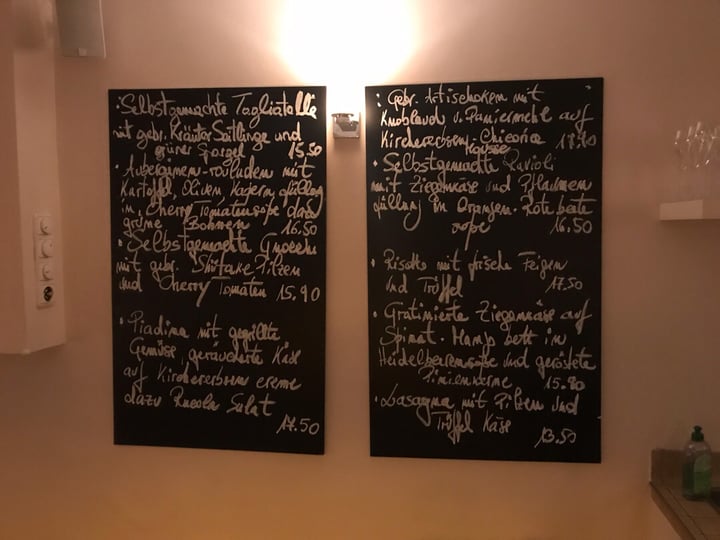 · Selbstgemachte Tagliatelle
mit gebr. Kräuter Saitlinge und
grüner Spargel 15.50
· Auberginen-rouladen mit
Kartoffel, Oliven Kapern füllung
in Cherry Tomatensoße dazu
grüne Bohnen 16.50
· Selbstgemachte Gnocchi
mit gebr. Shitake Pilzen
und Cherry Tomaten 15,90
· Piadina mit gegrillte
Gemüse, geräucherte Käse
auf Kirchererbsen creme
dazu Rucola Salat
17.50
: Gebr. Artischoken mit
Knoblauch u. Paniermehl auf
Kirchererbsen-Chicoria 17.90
· Selbstgemachte Ravioli
mit Ziegenkäse und Pflaumen
füllung in Orangen-Rote beete
16.50
· Risotto mit frische Feigen
und Trüffel 17.50
· Gratinierte Ziegenkäse auf
Spinat-Hanf bett in
Heidelbeerensoße und geröstete
Pinienkerne 15.90
· Lasagna mit Pilzen und
Trüffel Käse
13.50